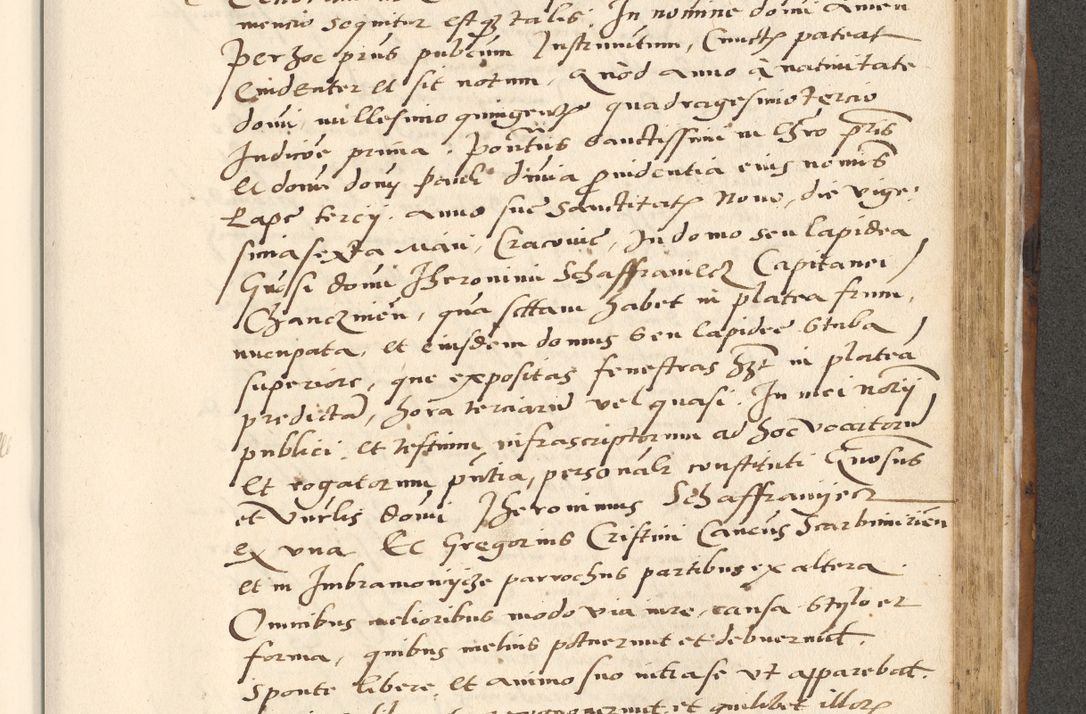 mencio sequitur estq3 talis. In nomine domi amen
Per hoc prns publcum Instrumtum, Cunctis pateat
Euidenter et sit notum, quod anno a natiuitate
domi, millesimo quingentes quadragesimotercio
Indicoe prima. Pontus Sanctissimi in chro pris
et domi domi Pauli diuia prouidentia eius nomis
Pape tercij. anno sue Sanctitatis Nono, die vige:
simasexta Maii, Cracouie, In domo seu lapidea
Gnosi domi Jheronimi Schaffraniecz Capitanei
Chanczinen, qua scttam habet in platea frum,
nucupata, et eiusdem domus seu lapidee stuba
superiore, que expositas fenestras hzt in platea
predicta, hora terciaru vel quasi. In mei norij
publici, et testium, infrascriptorum ad hoc vocatoru
et rogatorum pntia, personalr constituti Gnosus
et Vnrlis domi Jheronimus Schaffranyecz
ex vna Ec Gregorius Cristini Cancus Scarbimirien
et in Imbramowycze parrochus partibus ex altera.
Omnibus melioribus modo via iure, causa stylo et
forma, quibus melius potuerunt et debuerunt.
Sponte libere, et animo suo nitiase vt apparebat.
et quilibet illorum